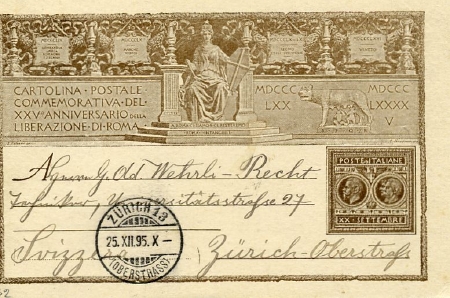 CARTOLINA · POSTALE
COMMEMORATIVA · DEL
XXVº ANNIVERSARIO DELLA
LIBERAZIONE · DI · ROMA
MDCCC
LXX
MDCCC
LXXXX
V
POSTE ITALIANE
XX · SETTEMBRE
Ad. Wehrli - Recht
Techniker, Universitätsstrasse 27
Svizzera
Zürich-Oberstrass
ZÜRICH 13
25. XII. 95. X –
(OBERSTRASS)